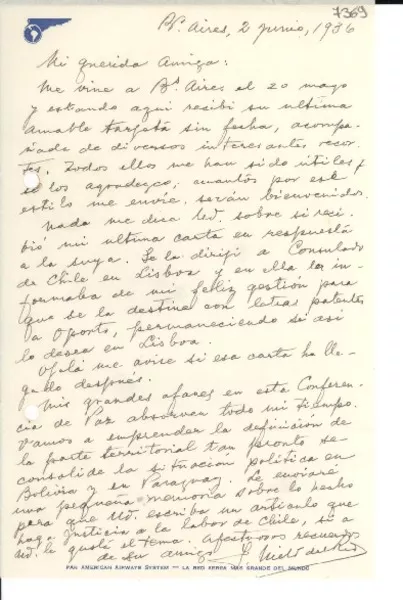 7369
Bs. Aires, 2 junio, 1936
Mi querida Amiga:
Me vine a Bs. Aires el 20 mayo
y estando aquí recibí su última
amable tarjeta sin fecha, acompa-
ñada de diversos interesantes recor-
tes. Todos ellos me han sido útiles y
se los agradezco; cuantos por este
estilo me envíe, serán bienvenidos.
Nada me dice Ud. sobre si reci-
bió mi última carta en respuesta
a la suya. Se la dirijí a Consulado
de Chile en Lisboa y en ella la in-
formaba de mi feliz gestión para
que se la destine con letras patentes
a Oporto, permaneciendo si así
lo desea en Lisboa.
Ojalá me avise si esa carta ha lle-
gado después.
Mis grandes afanes en esta Conferen-
cia de Paz absorven todo mi tiempo.
Vamos a emprender la definición de
la parte territorial tan pronto se
consolide la situación política en
Bolivia y en Paraguay. Le enviaré
una pequeña memoria sobre lo hecho
para que Ud. escriba un artículo que
haga justicia a la labor de Chile, si a
Ud. le gusta el tema. Afectuosos recuerdos
de su amigo F. Nieto del Río
PAN AMERICAN AIRWAYS SYSTEM — LA RED AEREA MAS GRANDE DEL MUNDO